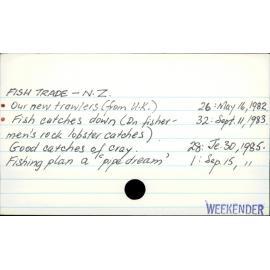 FISH TRADE - N.Z.
• Our new trawlers (from U.K.) 26: May 16, 1982.
• Fish catches down (Dn. fisher- 32: Sept. 11, 1983.
men's rock lobster catches)
Good catches of cray. 28: Je. 30, 1985.
Fishing plan a "pipe dream" 1: Sep. 15, "
WEEKENDER